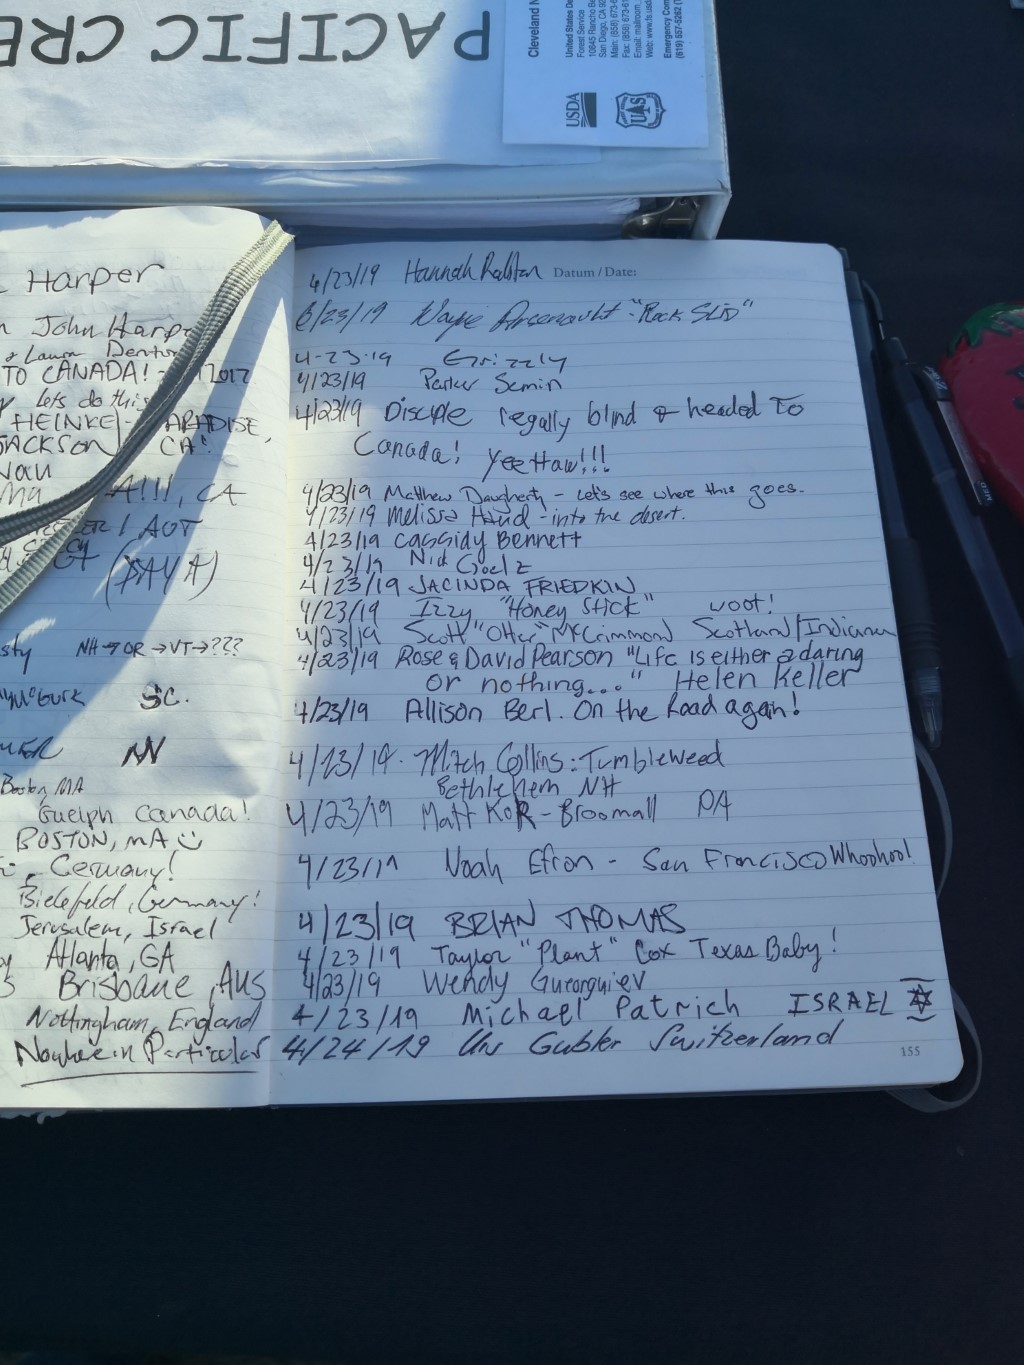 PACIFIC CRE
Cleveland N
United States De
Forest Service
10845 Rancho Be
San Diego, CA 92
Main: (858) 673-6
Fax: (858) 673-61
Email: mailroom_
Web: www.fs.usd
Emergency Comm
(619) 557-5262 (
USDA
UAS
Harper
John Harp
& Laura Denton
TO CANADA! 2017
lets do this
HEINKE - PARADISE,
JACKSON CA!
A!!!, CA
AUT
(DAYA)
sty NH → OR → VT → ???
McGurk SC.
NV
Boston, MA
Guelph Canada!
BOSTON, MA
Germany!
Bielefeld, Germany!
Jerusalem, Israel
Atlanta, GA
Brisbane, AUS
Nottingham, England
Nowhere in Particular
4/23/19 Hannah Ralston Datum / Date:
6/23/19 Wayne Arsenault - "Rock SLiD"
4-23-19 Grizzly
4/23/19 Parker Semin
4/23/19 Disciple legally blind & headed to
Canada! YeeHaw!!!
4/23/19 Matthew Daugherty - Let's see where this goes.
4/23/19 Melissa Hand - into the desert.
4/23/19 Cassidy Bennett
4/23/19 Nick Goelz
4/23/19 JACINDA FRIEDKIN
4/23/19 Izzy "Honey Stick" woot!
4/23/19 Scott "Otter" McCrimmond Scotland/Indiana
4/23/19 Rose & David Pearson "Life is either a daring
or nothing..." Helen Keller
4/23/19 Allison Berl. On the Road again!
4/23/19. Mitch Collins: Tumbleweed
Bethlehem NH
4/23/19 Matt KoR - Broomall PA
4/23/19 Noah Efron - San Francisco Whoohoo!
4/23/19 BRIAN THOMAS
4/23/19 Taylor "Plant" Cox Texas Baby!
4/23/19 Wendy Gueorguiev
4/23/19 Michael Patrich ISRAEL
4/24/19 Urs Gubler Switzerland
155